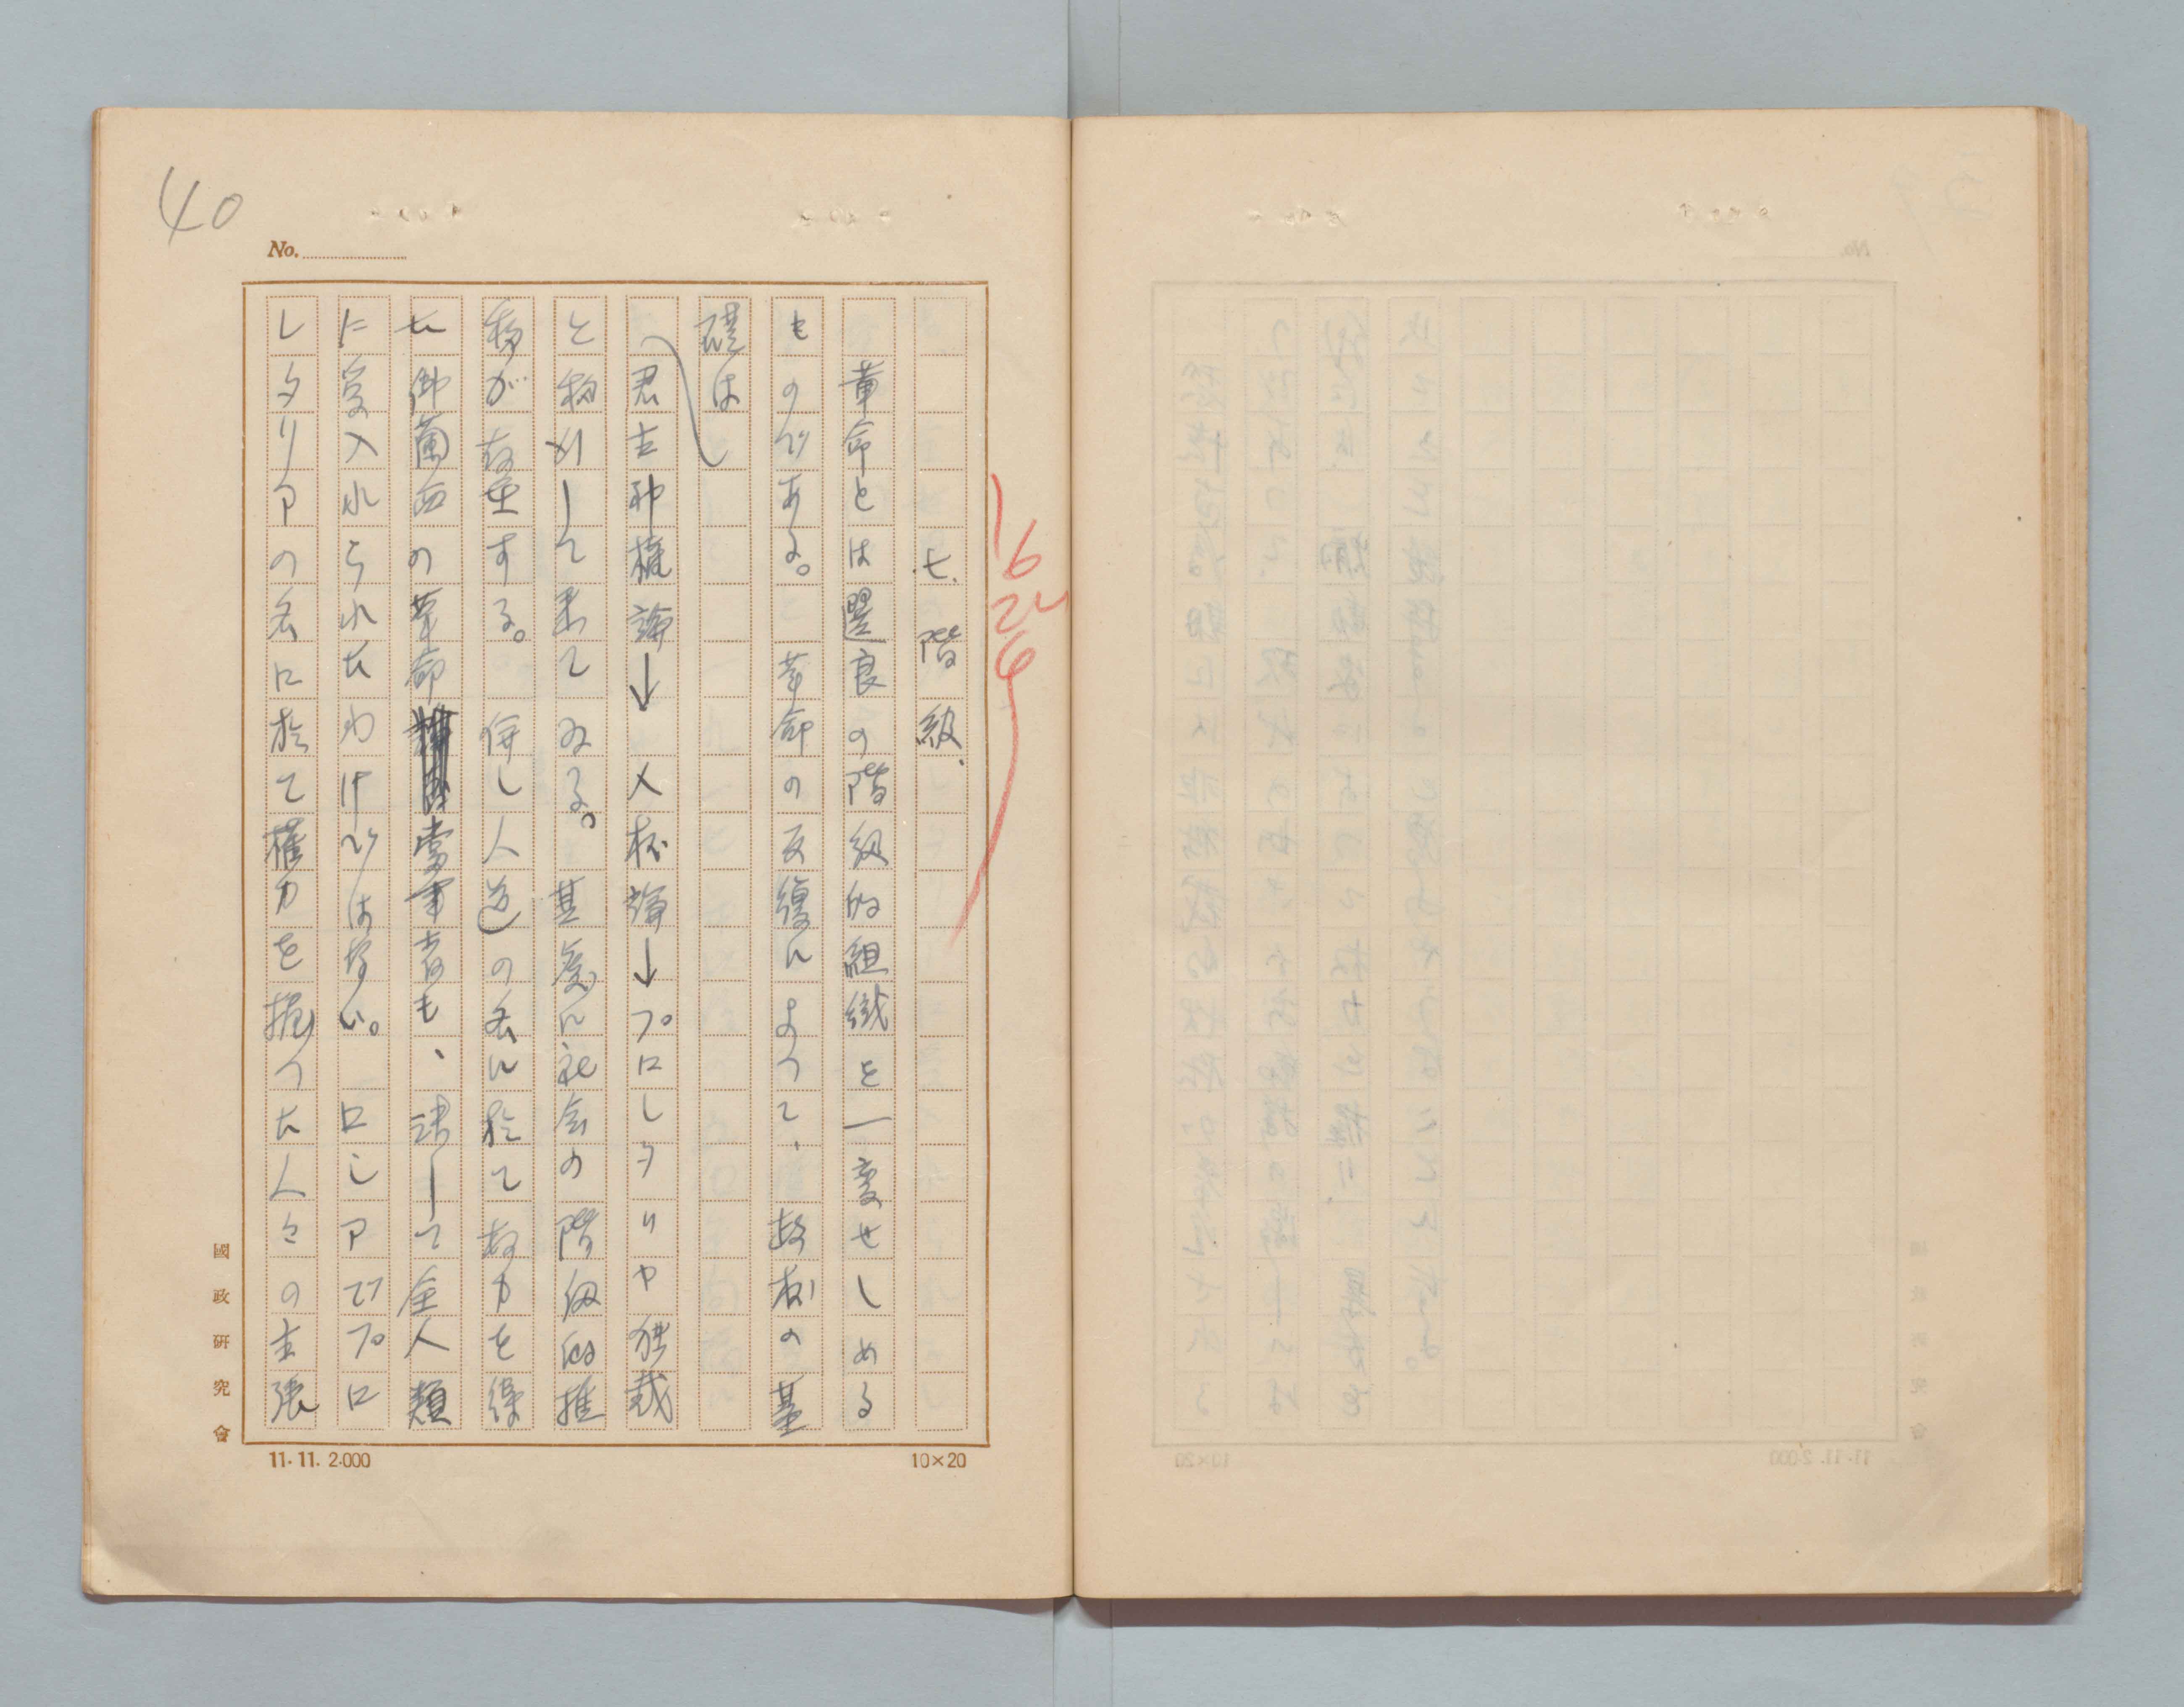 40
No.
16
24
七、階級、
革命とは選良の階級的組織を一変せしめる
ものである。革命の反復によつて、政村の基
礎は
君主神権論→人格論→プロレタリヤ独裁
と移行して来てゐる。其処に社会の階級的推
移が存在する。併し人道の名に於て教力を得
た佛蘭西の革命当事者も、決して全人類
に受入れられたわけではない。ロシアでプロ
レタリアの名に於て権力を握つた人々の主張
國政研究會
11.11.2.000
10×20